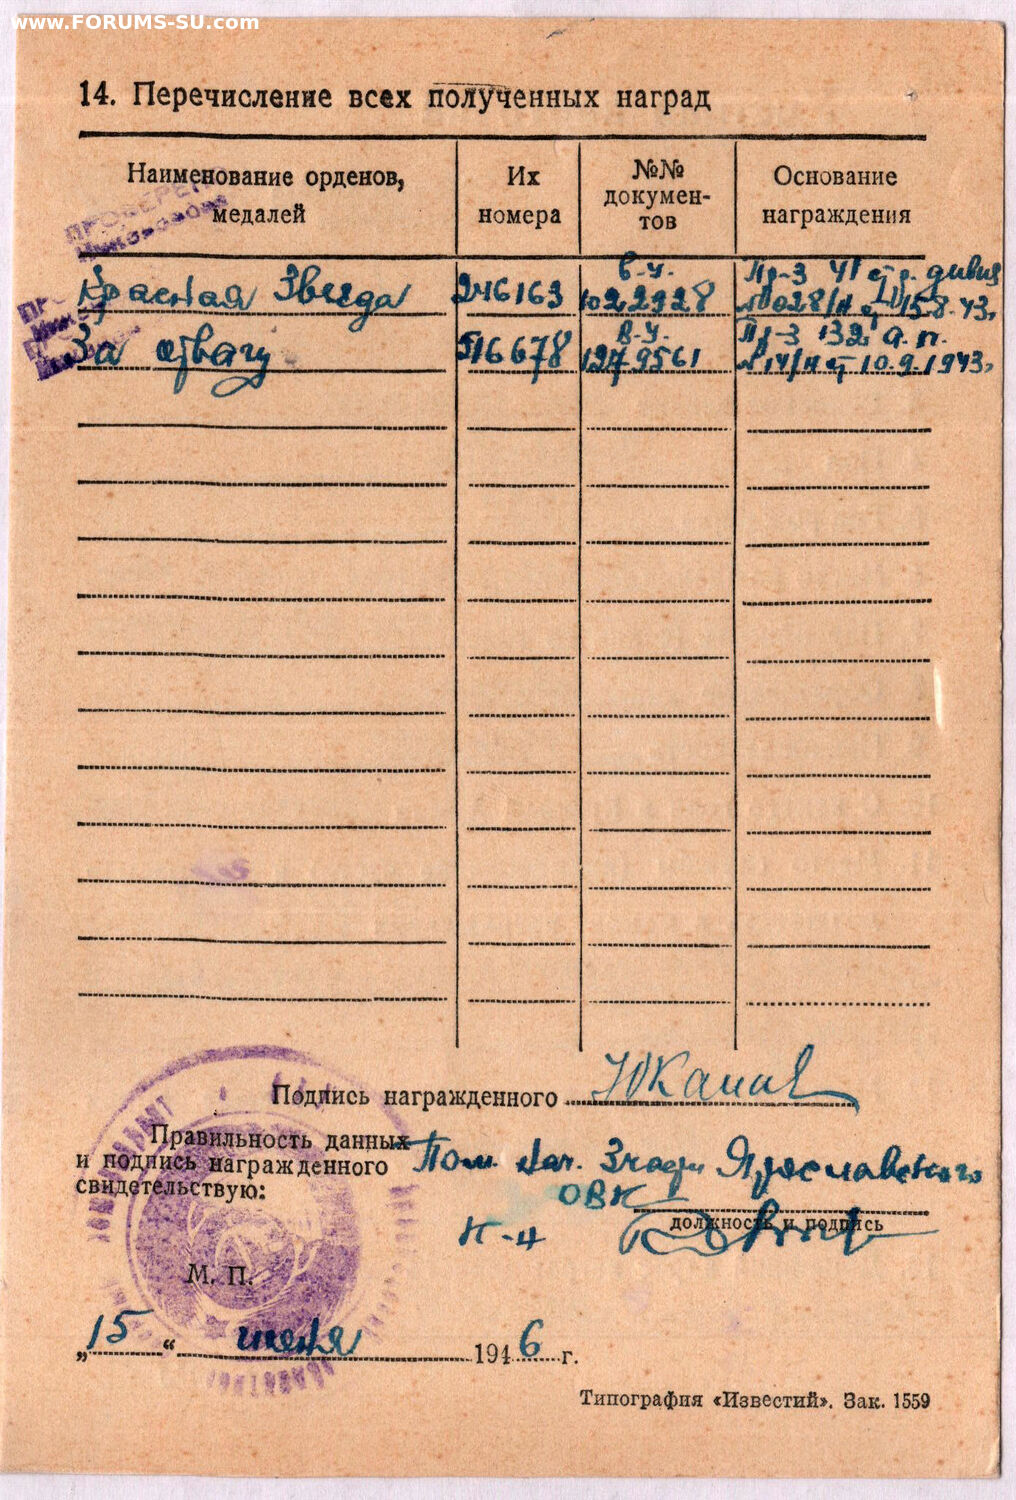 www.FORUMS-SU.com
14. Перечисление всех полученных наград
Наименование орденов, медалей
Их номера
№№ докумен- тов
Основание награждения
ПРОВЕРЕНО
Красная Звезда 246163 в.у. 1022928 Пр-з 41 стр. дивиз №028/н от 15.8.43.
За отвагу 516678 в.у. 1279561 Пр-з 132 а.п. №14/н от 10.9.1943.
Подпись награжденного
Правильность данных
и подпись награжденного Пом. Нач. Ярославского
свидетельствую: ОВК
должность и подпись
к-н
М. П.
„15“ июня 1946 г.
Типография «Известий». Зак. 1559